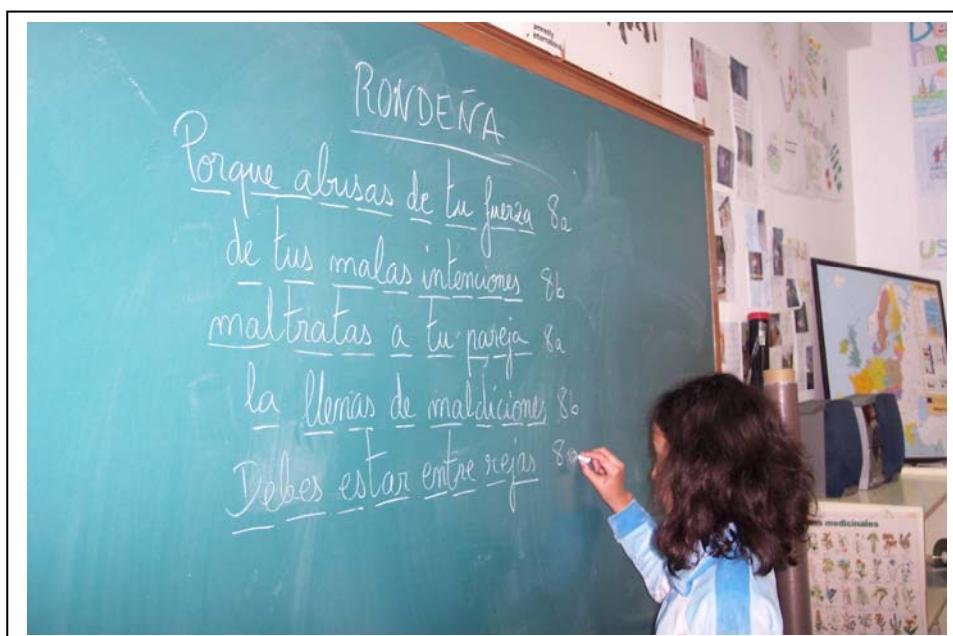 amnesty
international
RONDEÑA
Porque abusas de tu fuerza 8a
de tus malas intenciones 8b
maltratas a tu pareja 8a
la llenas de maldiciones 8b
Debes estar entre rejas 8a
medicinales